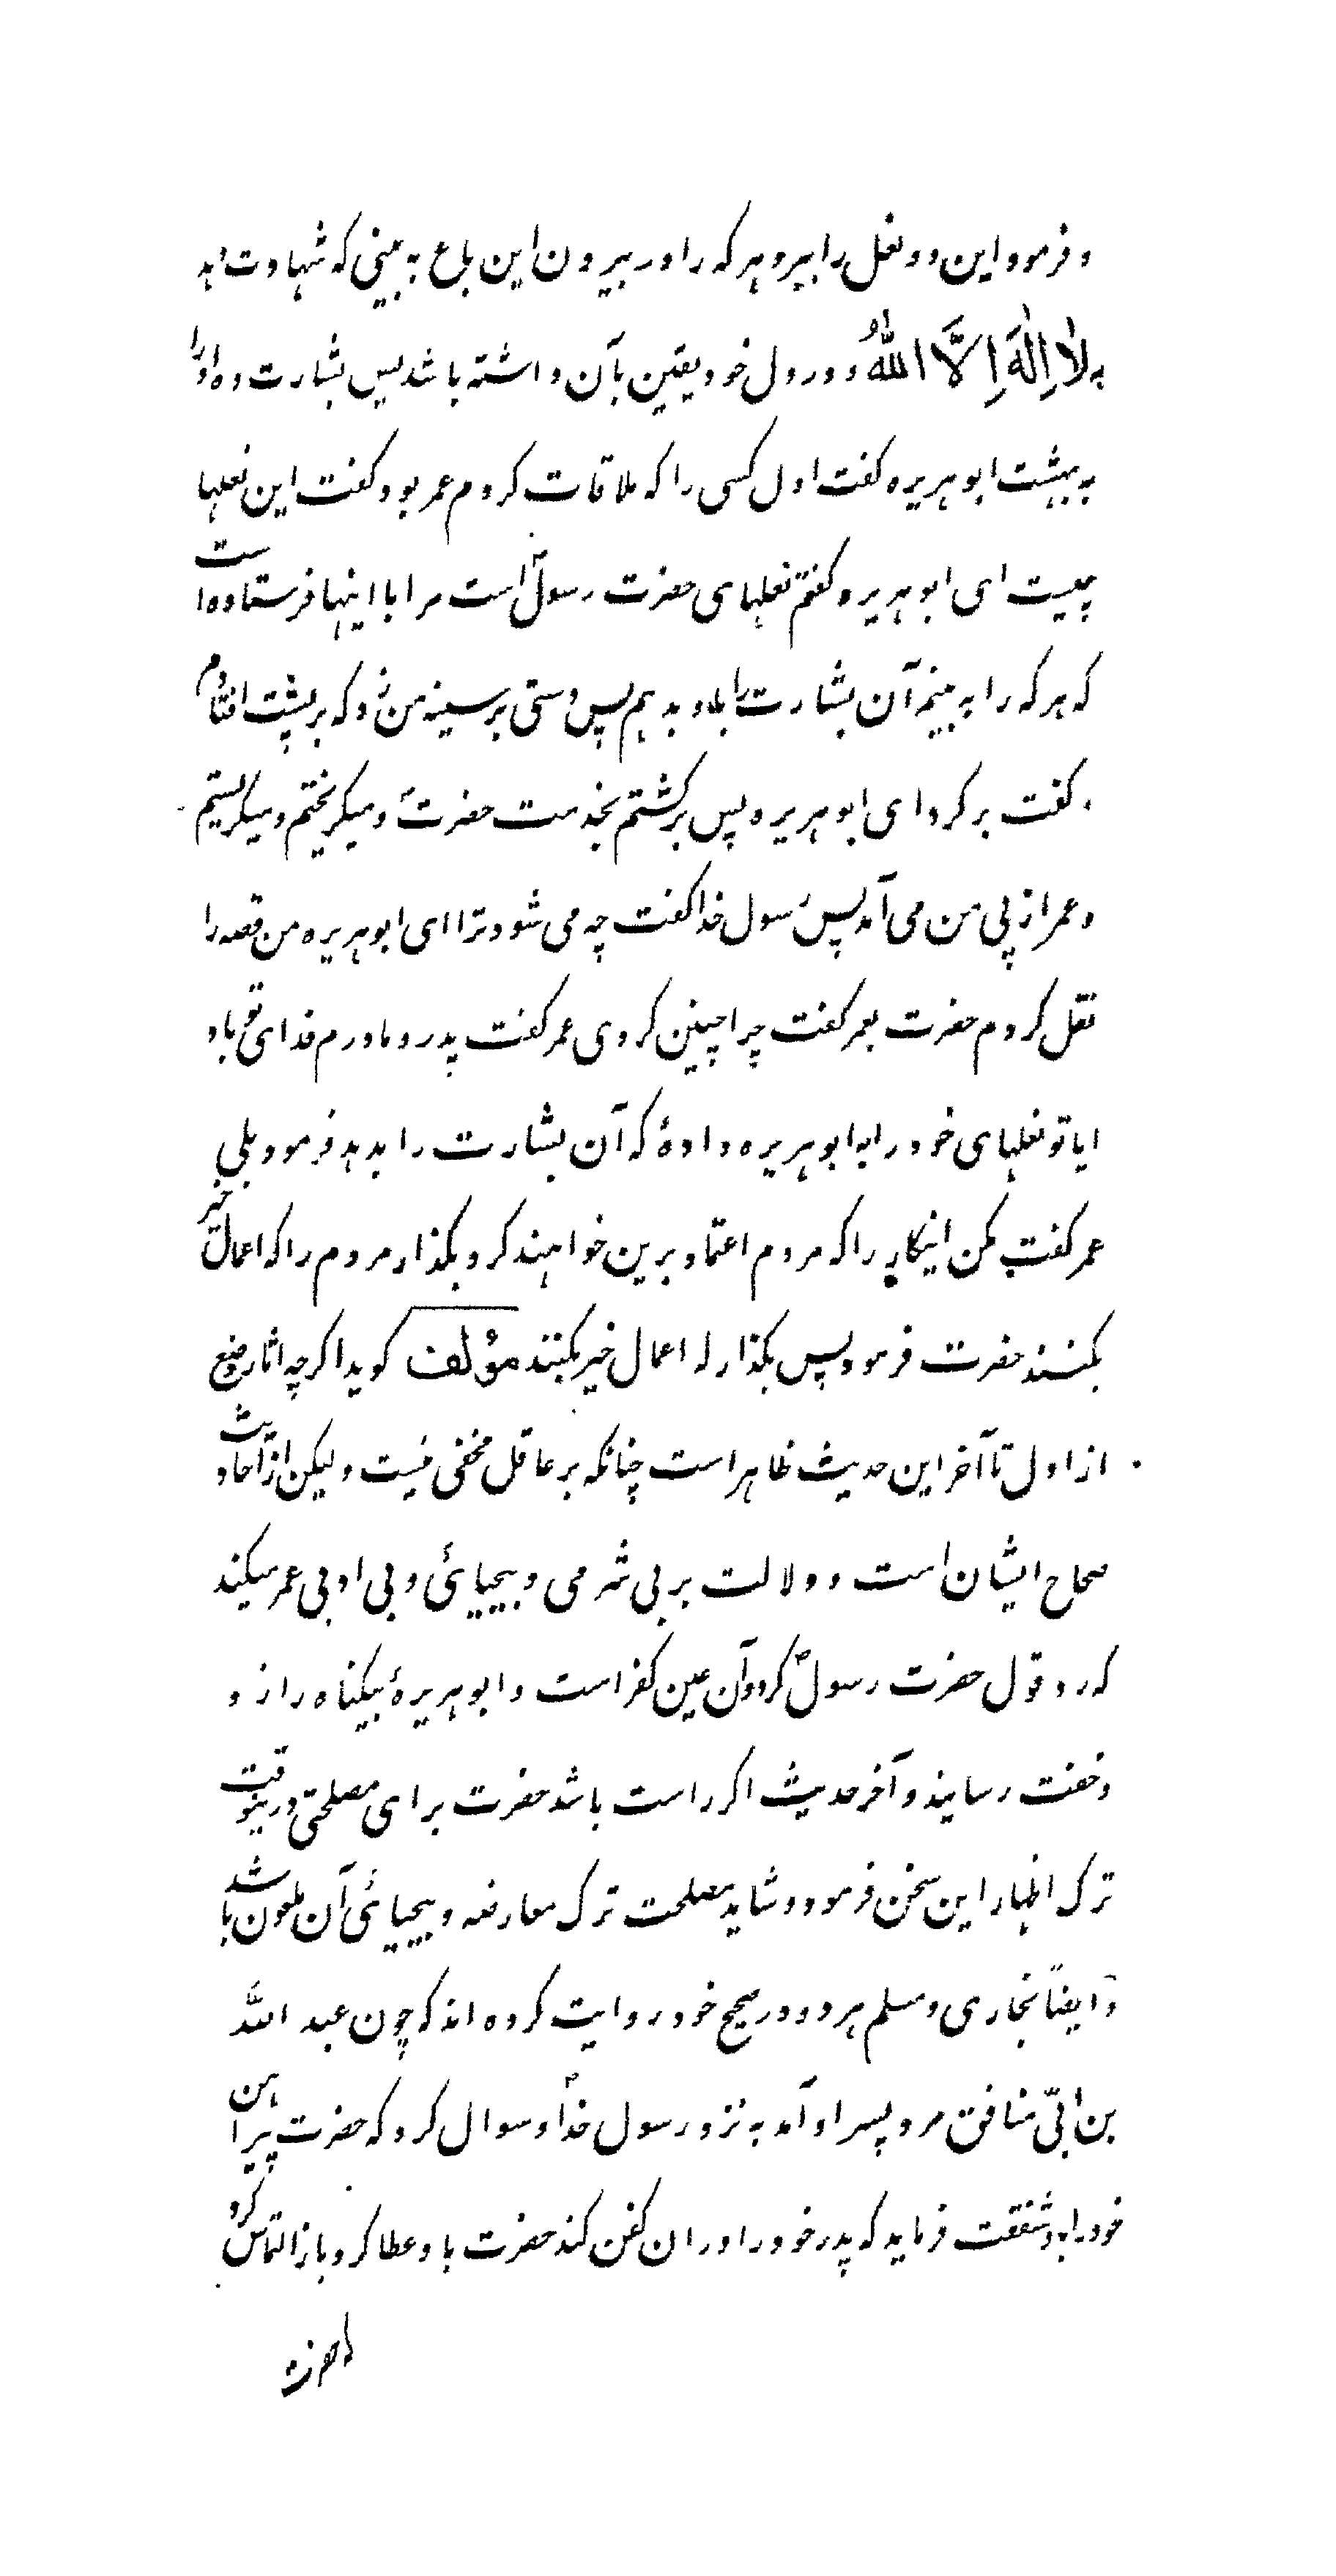 و فرمود این دو نعل را ببر و هر که را در بیرون این باغ به بینی که شهادت دهد
به لَا اِلٰهَ اِلَّا اللّٰهُ و در دل خود یقین بآن داشته باشد پس بشارت ده او را
به بهشت ابو هریره کفت اول کسی را که ملاقات کردم عمر بود کفت این نعلها
چیست ای ابو هریره کفتم نعلهای حضرت رسول ص است مرا با اینها فرستاده است
که هر که را به بینم آن بشارت را باو بدهم پس دستی بر سینه من زد که بر پشت افتادم
کفت بر کرد ای ابو هریره پس بر کشتم بخدمت حضرت و میکریختم و میکریستم
و عمر از پی من می آمد پس رسول خدا کفت چه می شود ترا ای ابو هریره من قصه را
نقل کردم حضرت بعمر کفت چرا چنین کردی عمر کفت پدر و مادرم فدای تو باد
ایا تو نعلهای خود را به ابو هریره دادهٔ که آن بشارت را بدهد فرمود بلی
عمر کفت مکن اینکار را که مردم اعتماد برین خواهند کرد بکذار مردم را که اعمال خیر
بکنند حضرت فرمود پس بکذار که اعمال خیر بکنند مؤلف کوید اکرچه اثار وضع
از اول تا آخر این حدیث ظاهر است چنانکه بر عاقل مخفی نیست و لیکن از احادیث
صحاح ایشان است و دلالت بر بی شرمی و بیحیائی و بی ادبی عمر میکند
که رد قول حضرت رسول ص کرد و آن عین کفر است و ابو هریرهٔ بیکناه را زد
و خفت رسانید و آخر حدیث اکر راست باشد حضرت برای مصلحتی درینوقت
ترک اظهار این سخن فرموده و شاید مصلحت ترک معارضه و بیحیائی آن ملعون باشد
و ایضاً بخاری و مسلم هر دو در صحیح خود روایت کرده اند که چون عبد اللّٰه
بن ابیّ منافق مرد پسر او آمد به نزد رسول خدا ص و سوال کرد که حضرت پیراهن
خود را به او شفقت فرماید که پدر خود را در ان کفن کند حضرت باو عطا کرد باز التماس کرد